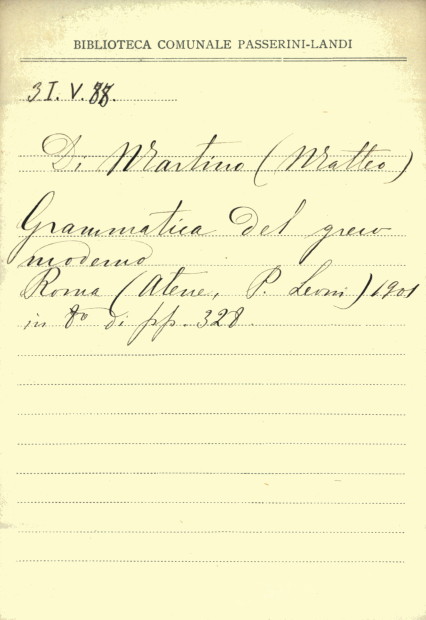 BIBLIOTECA COMUNALE PASSERINI-LANDI
3I. V. 88.
Di Martino (Matteo)
Grammatica del greco
moderno
Roma (Atene, P. Leoni) 1901
in 8º di pp. 328.